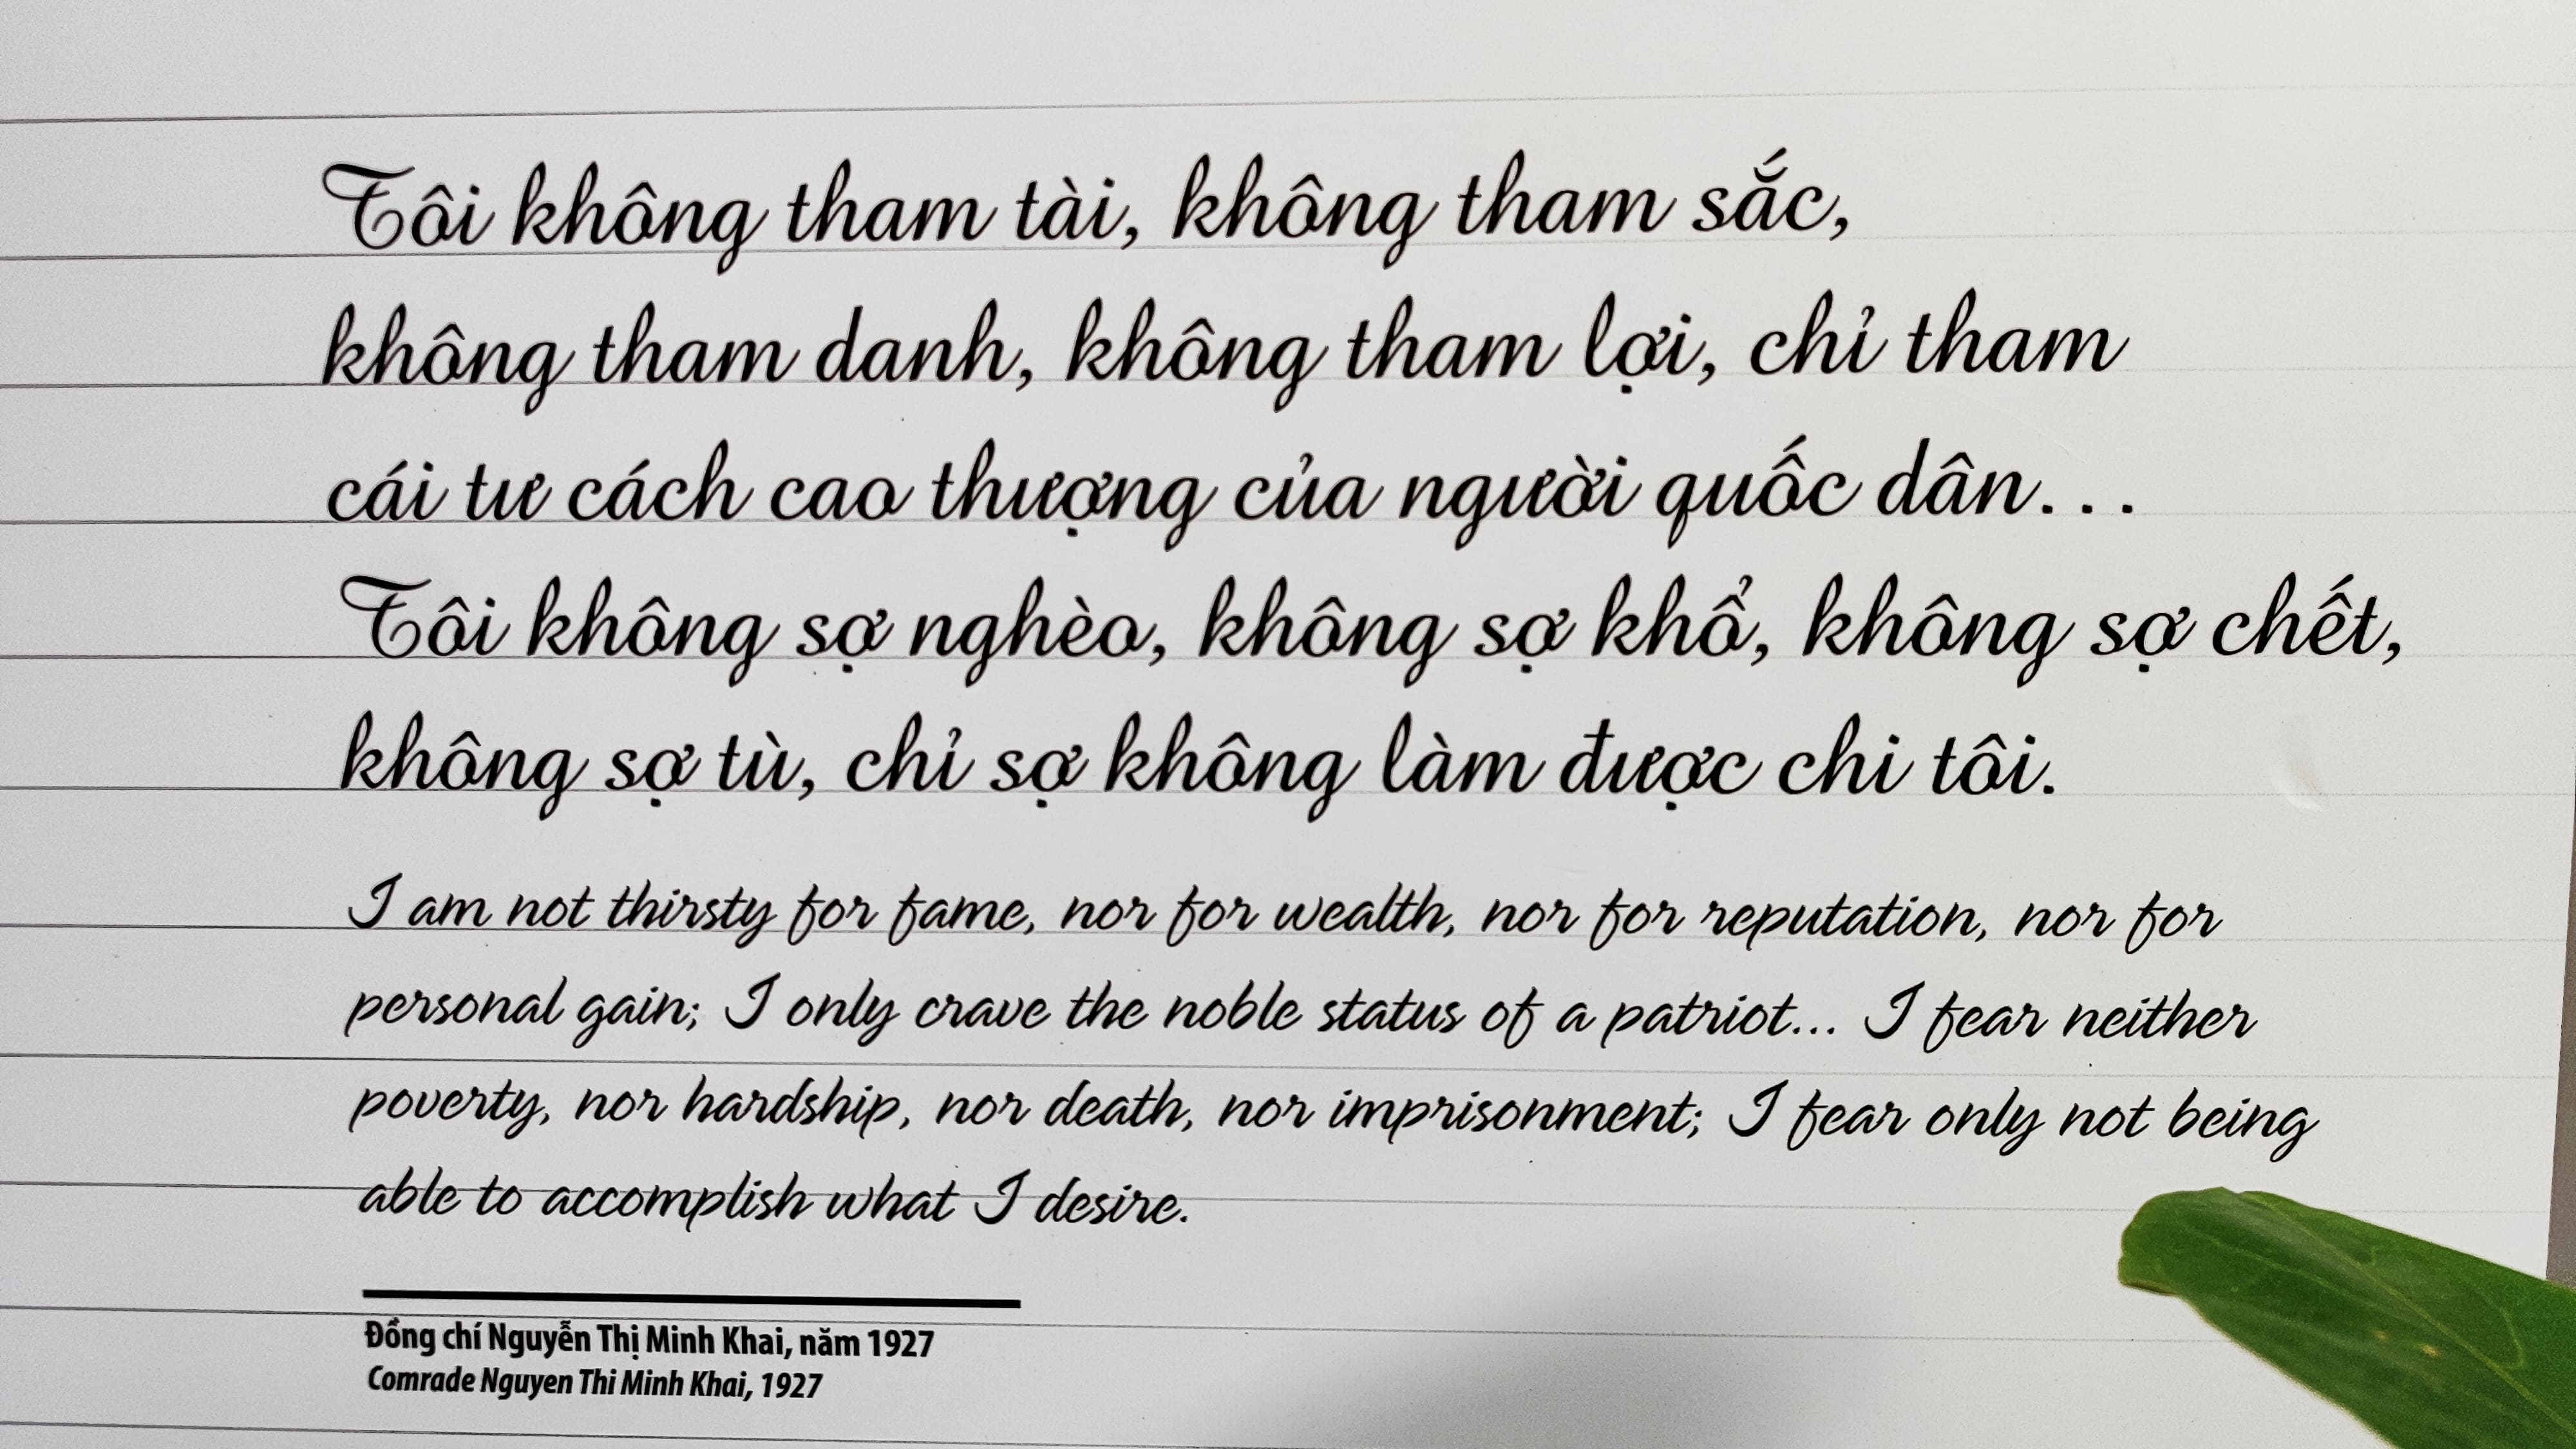 Tôi không tham tài, không tham sắc,
không tham danh, không tham lợi, chỉ tham
cái tư cách cao thượng của người quốc dân...
Tôi không sợ nghèo, không sợ khổ, không sợ chết,
không sợ tù, chỉ sợ không làm được chi tôi.
I am not thirsty for fame, nor for wealth, nor for reputation, nor for
personal gain; I only crave the noble status of a patriot... I fear neither
poverty, nor hardship, nor death, nor imprisonment; I fear only not being
able to accomplish what I desire.
Đồng chí Nguyễn Thị Minh Khai, năm 1927
Comrade Nguyen Thi Minh Khai, 1927